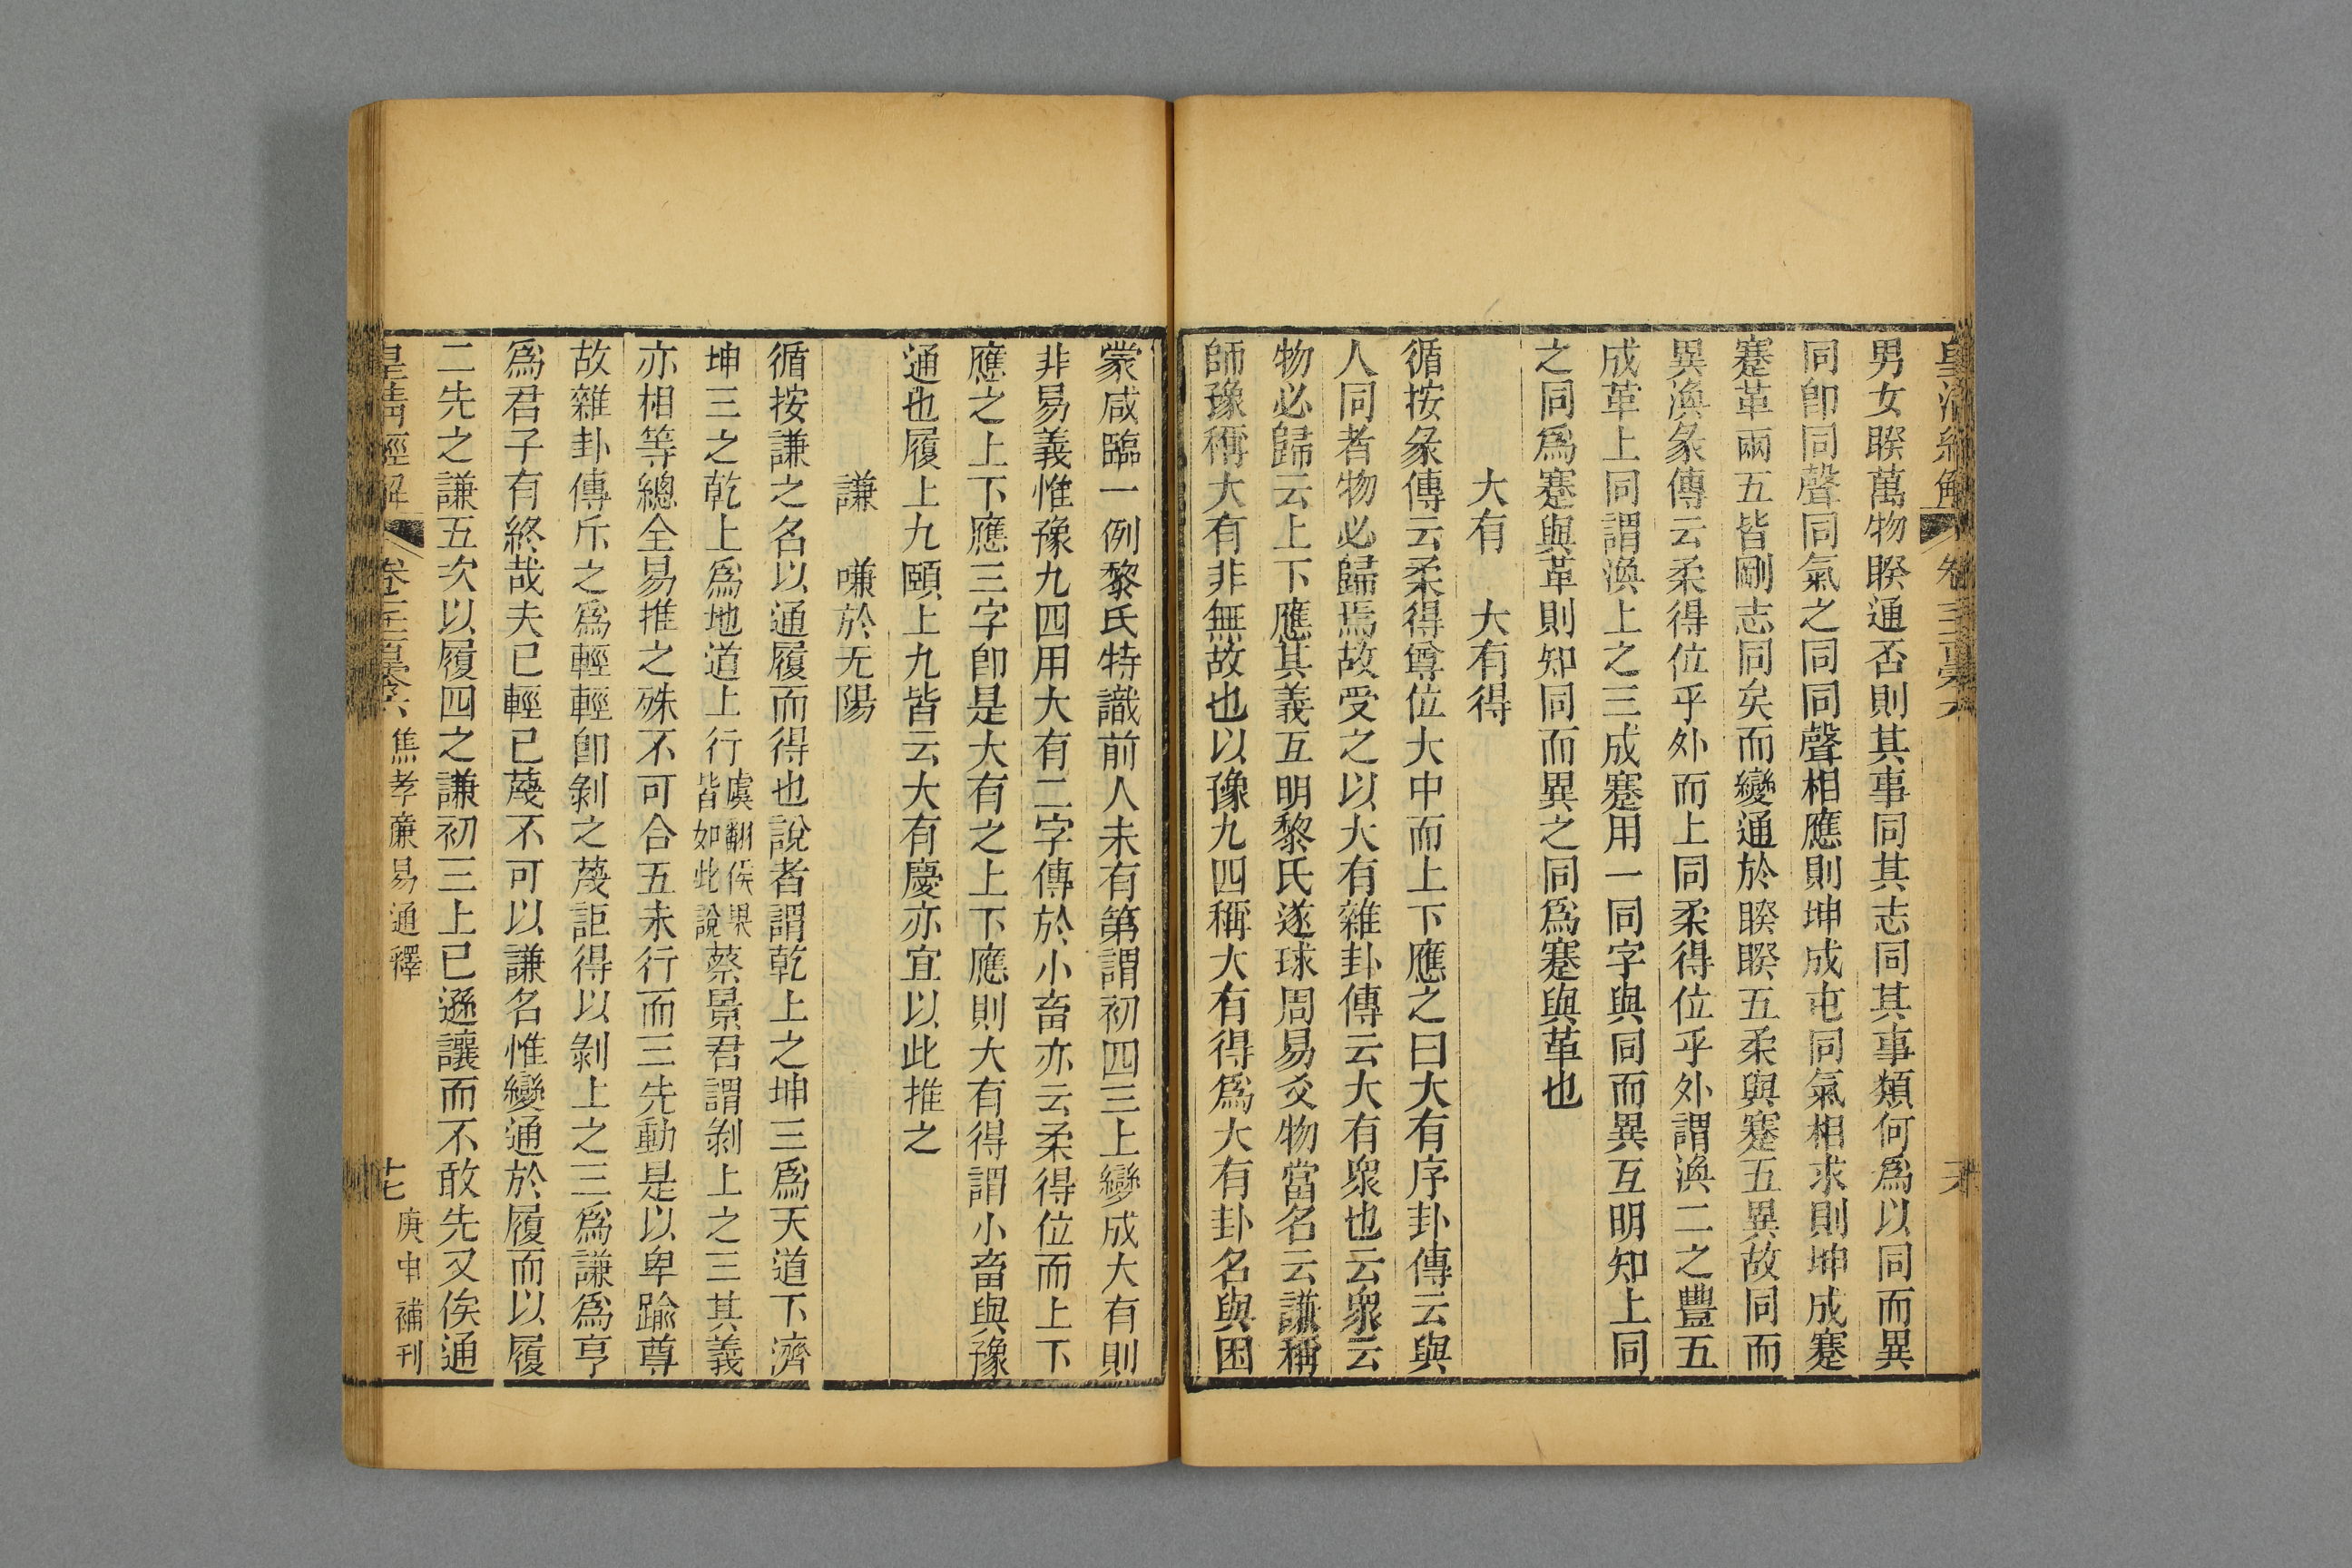 男女睽萬物睽通否則其事同其志同其事類何爲以同而異
同卽同聲同氣之同同聲相應則坤成屯同氣相求則坤成蹇
蹇革兩五皆剛志同矣而變通於睽睽五柔與蹇五異故同而
異渙彖傳云柔得位乎外而上同柔得位乎外謂渙二之豐五
成革上同謂渙上之三成蹇用一同字與同而異互明知上同
之同爲蹇與革則知同而異之同爲蹇與革也
大有 大有得
循按彖傳云柔得尊位大中而上下應之曰大有序卦傳云與
人同者物必歸焉故受之以大有雜卦傳云大有衆也云衆云
物必歸云上下應其義互明黎氏遂球周易爻物當名云謙稱
師豫稱大有非無故也以豫九四稱大有得爲大有卦名與困
蒙咸臨一例黎氏特識前人未有第謂初四三上變成大有則
非易義惟豫九四用大有二字傳於小畜亦云柔得位而上下
應之上下應三字卽是大有之上下應則大有得謂小畜與豫
通也履上九頤上九皆云大有慶亦宜以此推之
謙 嗛於无陽
循按謙之名以通履而得也說者謂乾上之坤三爲天道下濟
坤三之乾上爲地道上行虞翻侯果皆如此說蔡景君謂剝上之三其義
亦相等總全易推之殊不可合五未行而三先動是以卑踰尊
故雜卦傳斥之爲輕輕卽剝之蔑詎得以剝上之三爲謙爲亨
爲君子有終哉夫已輕已蔑不可以謙名惟變通於履而以履
二先之謙五次以履四之謙初三上已遜讓而不敢先又俟通
皇清經解
焦孝廉易通釋
庚申補刊